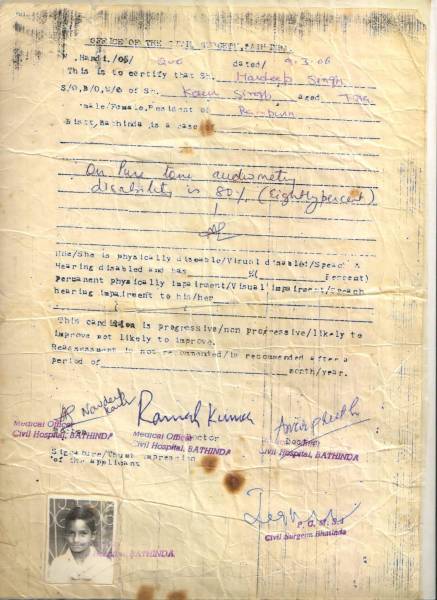 OFFICE OF THE CIVIL SURGEON, BATHINDA.
No. Handi./06/ dated/ 9.3.06
This is to certify that Sh. Hardeep Singh
S/O,D/O,W/o of Sh. Kaur Singh aged
male/Female, Resident of Rampura
Distt, Bathinda is a case
On Pure tone audiometry
disability is 80% (Eighty percent)
He/She is physically diseable/Virual disabled/Speach &
Hearing disabled and has %( Percent)
permanent physically impairment/Visual impairment/speach
hearing impairment to his/her
This candition is progressive/non progressive/likely to
improve not likely to improve.
Reassessment is not recommended/is recommended after a
period of month/year.
Navdeep Kaur
Ramesh Kumar
Medical Officer
Civil Hospital, BATHINDA
Medical Officer
Civil Hospital, BATHINDA
Doctor
Civil Hospital, BATHINDA
Signature/Thumb impression
of the applicant
BATHINDA
P. C. M. S-I
Civil Surgeon Bhatinda